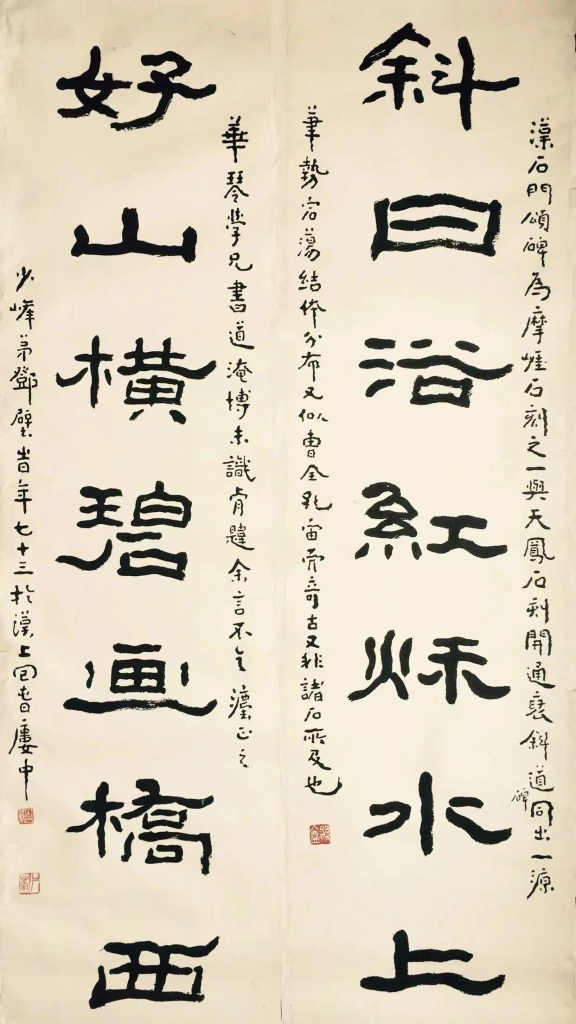 漢石門頌碑為摩崖石刻之一與天鳳石刻開通褒斜道碑同出一源
斜日浴紅秌水上
筆勢宕蕩結体分布又似曹全孔宙而奇古又非諸石所及也
華琴學兄書道淹博未識肯韙余言不乞鑒正之
好山橫碧画橋西
少峰弟鄧壁旹年七十三於漢上回旾廔中